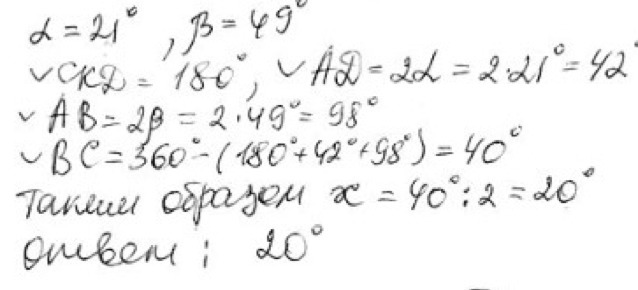 α = 21°, β = 49°
◡CKD = 180°, ◡AD = 2α = 2·21° = 42°
◡AB = 2β = 2·49° = 98°
◡BC = 360° - (180° + 42° + 98°) = 40°
Таким образом x = 40° : 2 = 20°
Ответ: 20°